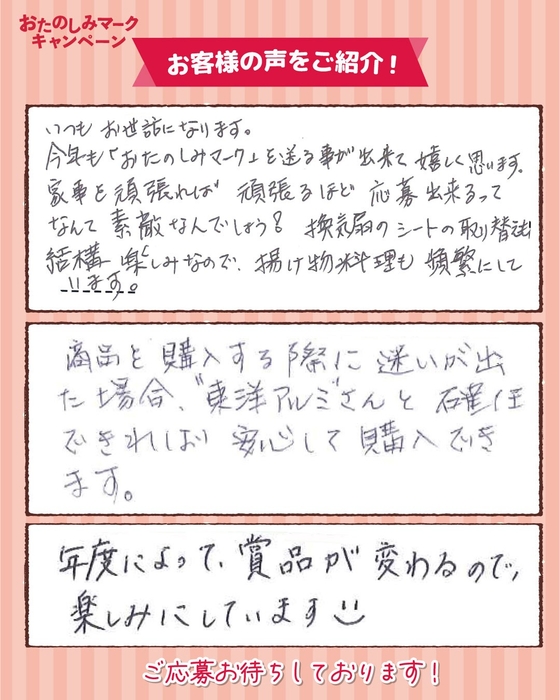 おたのしみマーク
キャンペーン
お客様の声をご紹介！
いつも お世話になります。
今年も「おたのしみマーク」を送る事が出来て 嬉しく思います。
家事を頑張れば 頑張るほど 応募出来るって
なんて 素敵なんでしょう? 換気扇のシートの取り替えは
結構 楽しみなので、揚げ物料理も 頻繁にして
います。
商品を購入する際に迷いが出
た場合、"東洋アルミ"さんと確信
できれば 安心して購入でき
ます。
年度によって、賞品が変わるので、
楽しみにしています
ご応募お待ちしております！